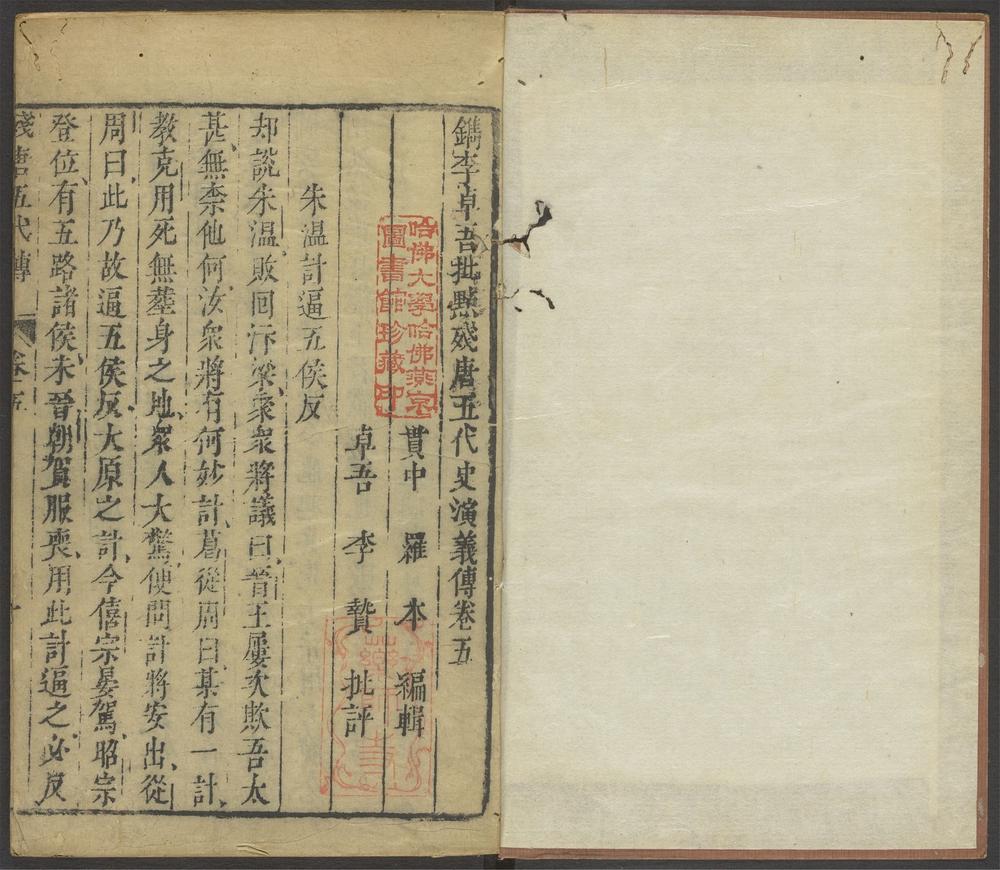 鐫李卓吾批點殘唐五代史演義傳卷五
貫中 羅 本 編輯
卓吾 李 贄 批評
哈佛大學哈佛燕京
圖書館珍藏印
朱溫計逼五侯反
却說朱溫敗回汴梁衆衆將議曰晉王屢次欺吾太
甚無柰他何汝衆將有何妙計葛從周曰某有一計
教克用死無塟身之地衆人大驚便問計將安出從
周曰此乃故逼五侯反大原之計今僖宗晏駕昭宗
登位有五路諸侯未晉朝賀服喪用此計逼之必反
殘唐五代傳 卷五